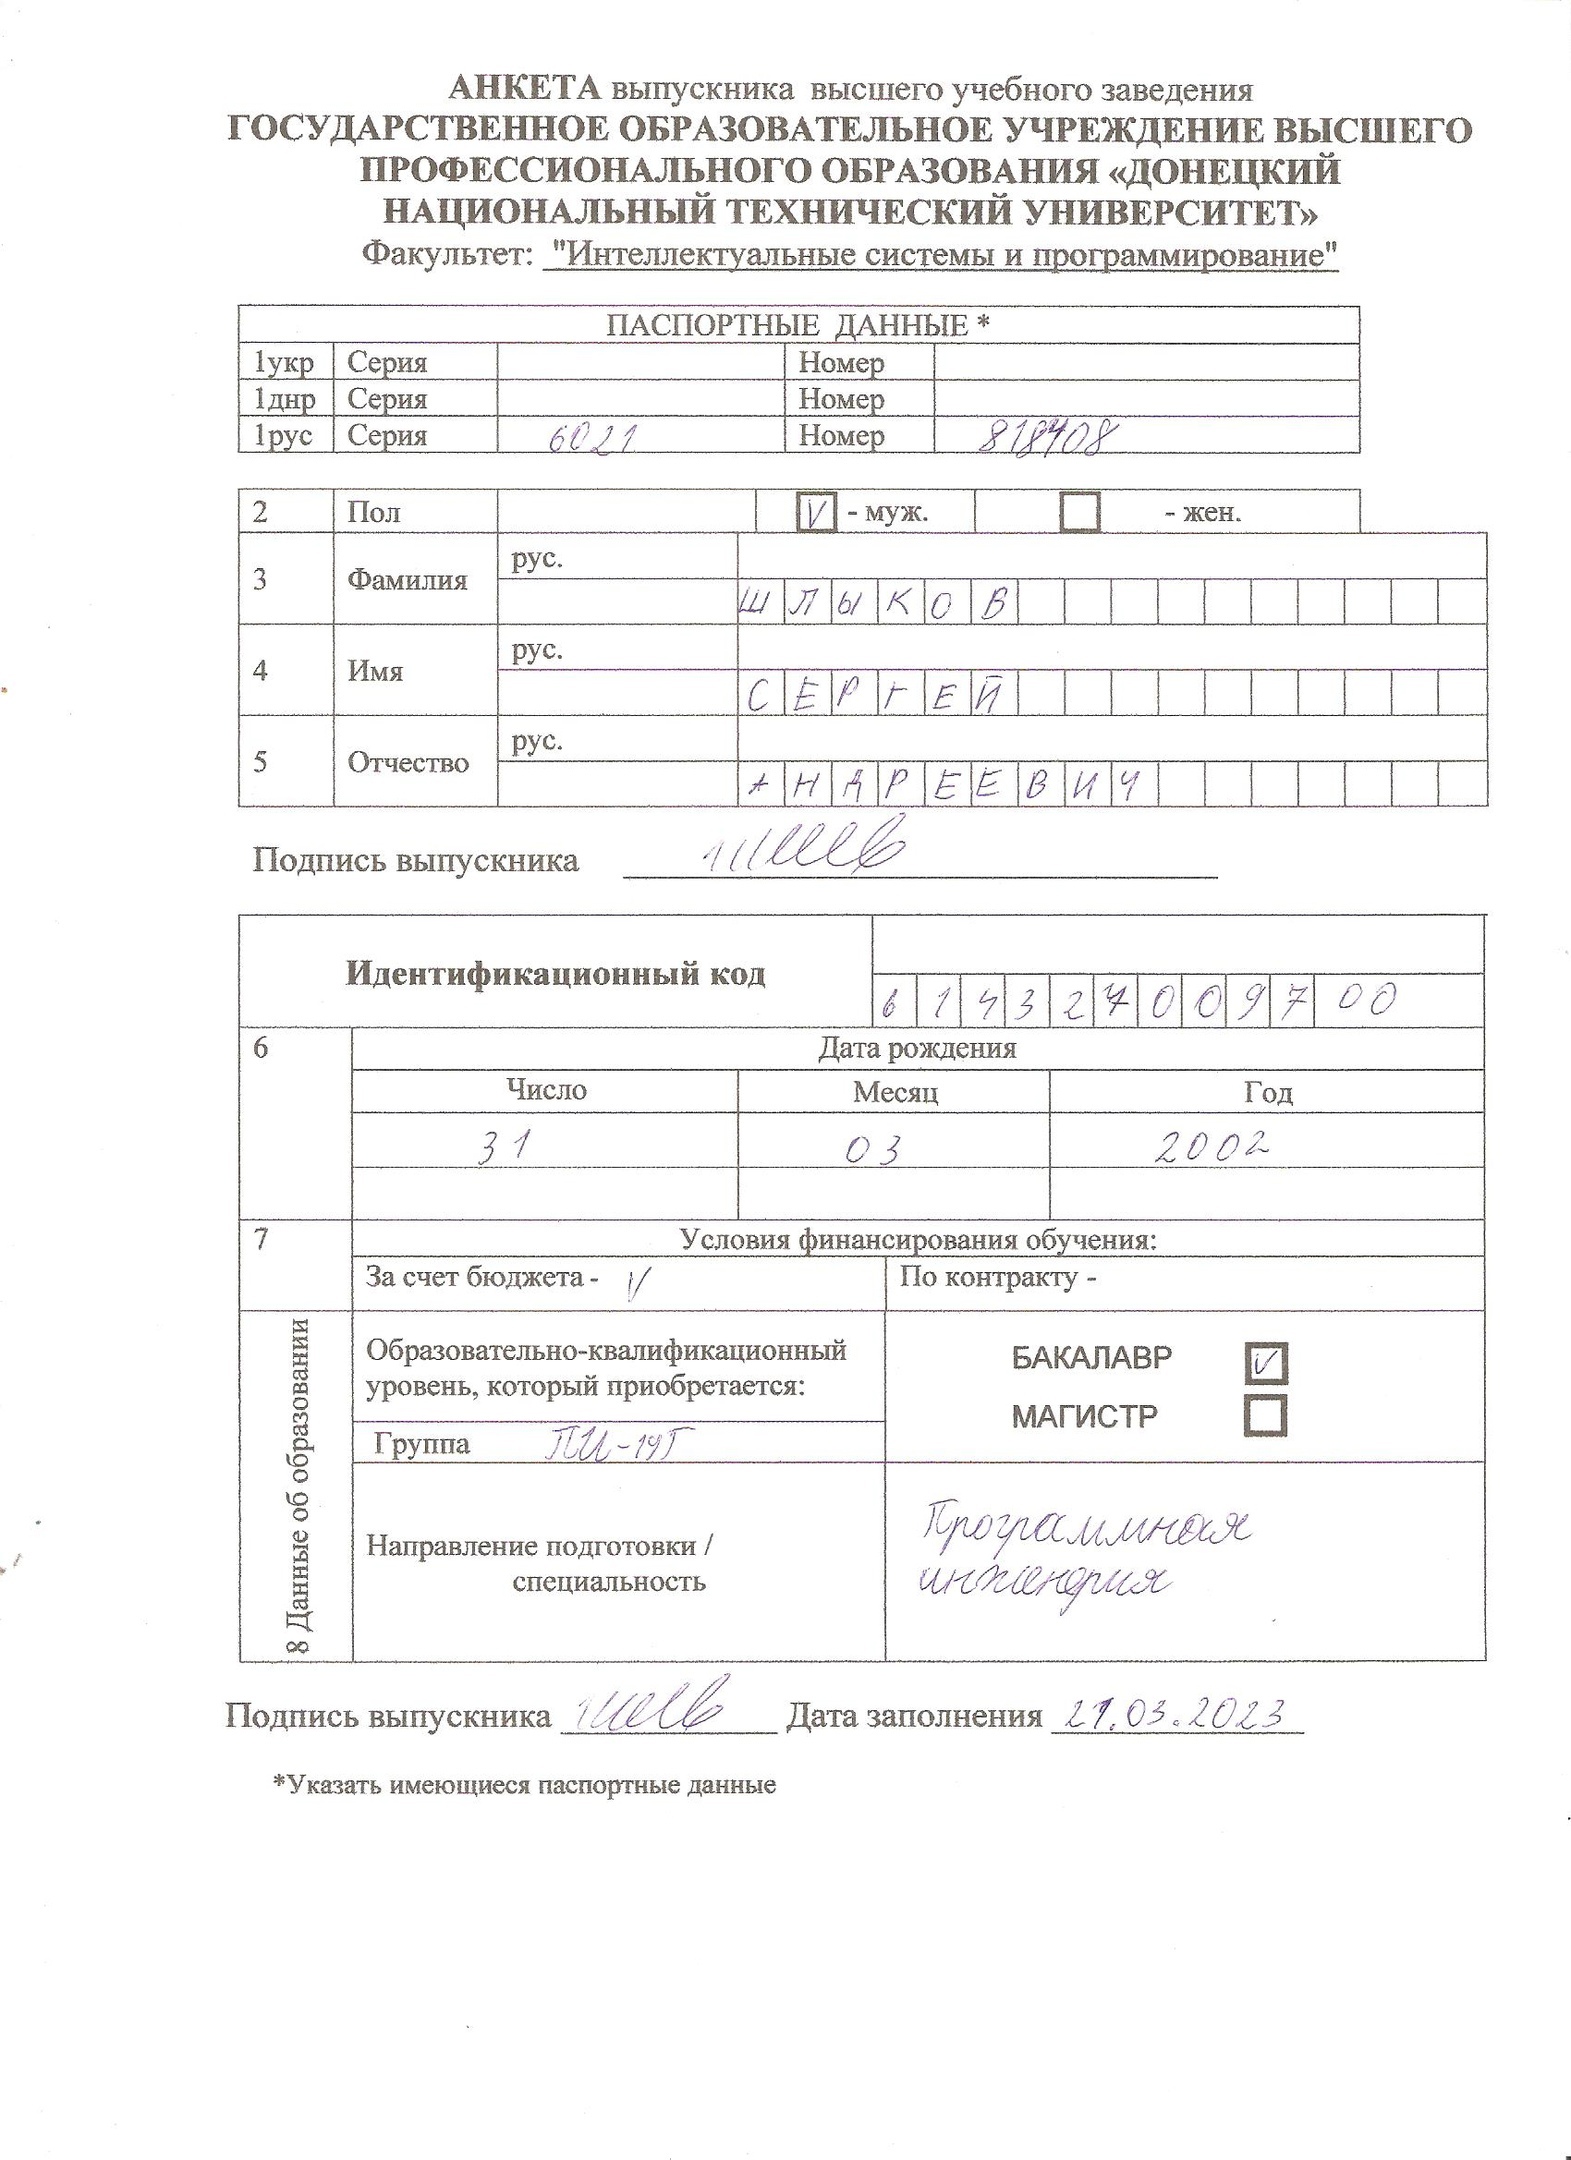 АНКЕТА выпускника высшего учебного заведения
ГОСУДАРСТВЕННОЕ ОБРАЗОВАТЕЛЬНОЕ УЧРЕЖДЕНИЕ ВЫСШЕГО
ПРОФЕССИОНАЛЬНОГО ОБРАЗОВАНИЯ «ДОНЕЦКИЙ
НАЦИОНАЛЬНЫЙ ТЕХНИЧЕСКИЙ УНИВЕРСИТЕТ»
Факультет: "Интеллектуальные системы и программирование"
ПАСПОРТНЫЕ ДАННЫЕ *
1укр Серия Номер
1днр Серия Номер
1рус Серия 6021 Номер 818408
2 Пол V - муж. - жен.
рус.
3 Фамилия
ШЛЫКОВ
рус.
4 Имя
СЕРГЕЙ
рус.
5 Отчество
АНДРЕЕВИЧ
Подпись выпускника
Идентификационный код
614327009700
6 Дата рождения
Число Месяц Год
31 03 2002
7 Условия финансирования обучения:
За счет бюджета - V По контракту -
8 Данные об образовании
Образовательно-квалификационный
уровень, который приобретается:
БАКАЛАВР V
МАГИСТР
Группа ПИ-19Г
Направление подготовки /
специальность
Программная
инженерия
Подпись выпускника Дата заполнения 21.03.2023
*Указать имеющиеся паспортные данные